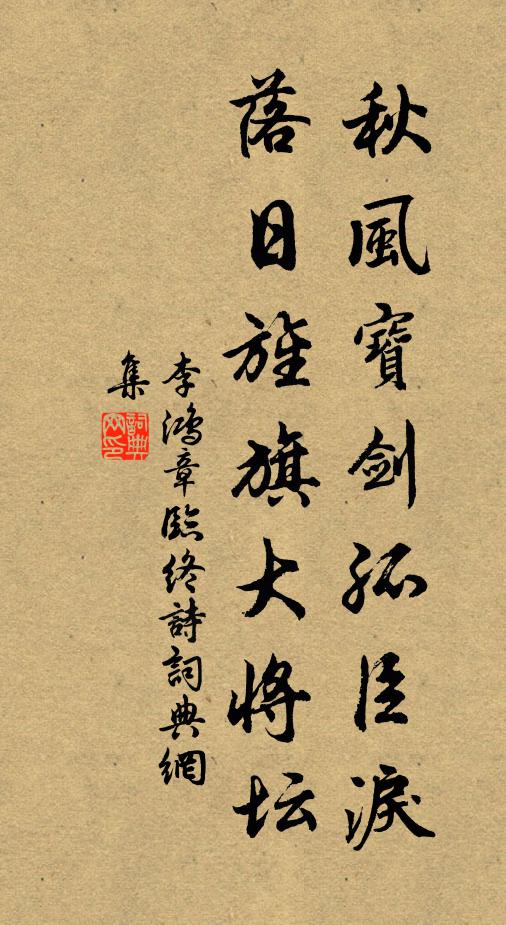 秋風寶劍孤臣淚
落日旌旗大將坛
李鴻章臨終詩詞典網
集
詞典
网印